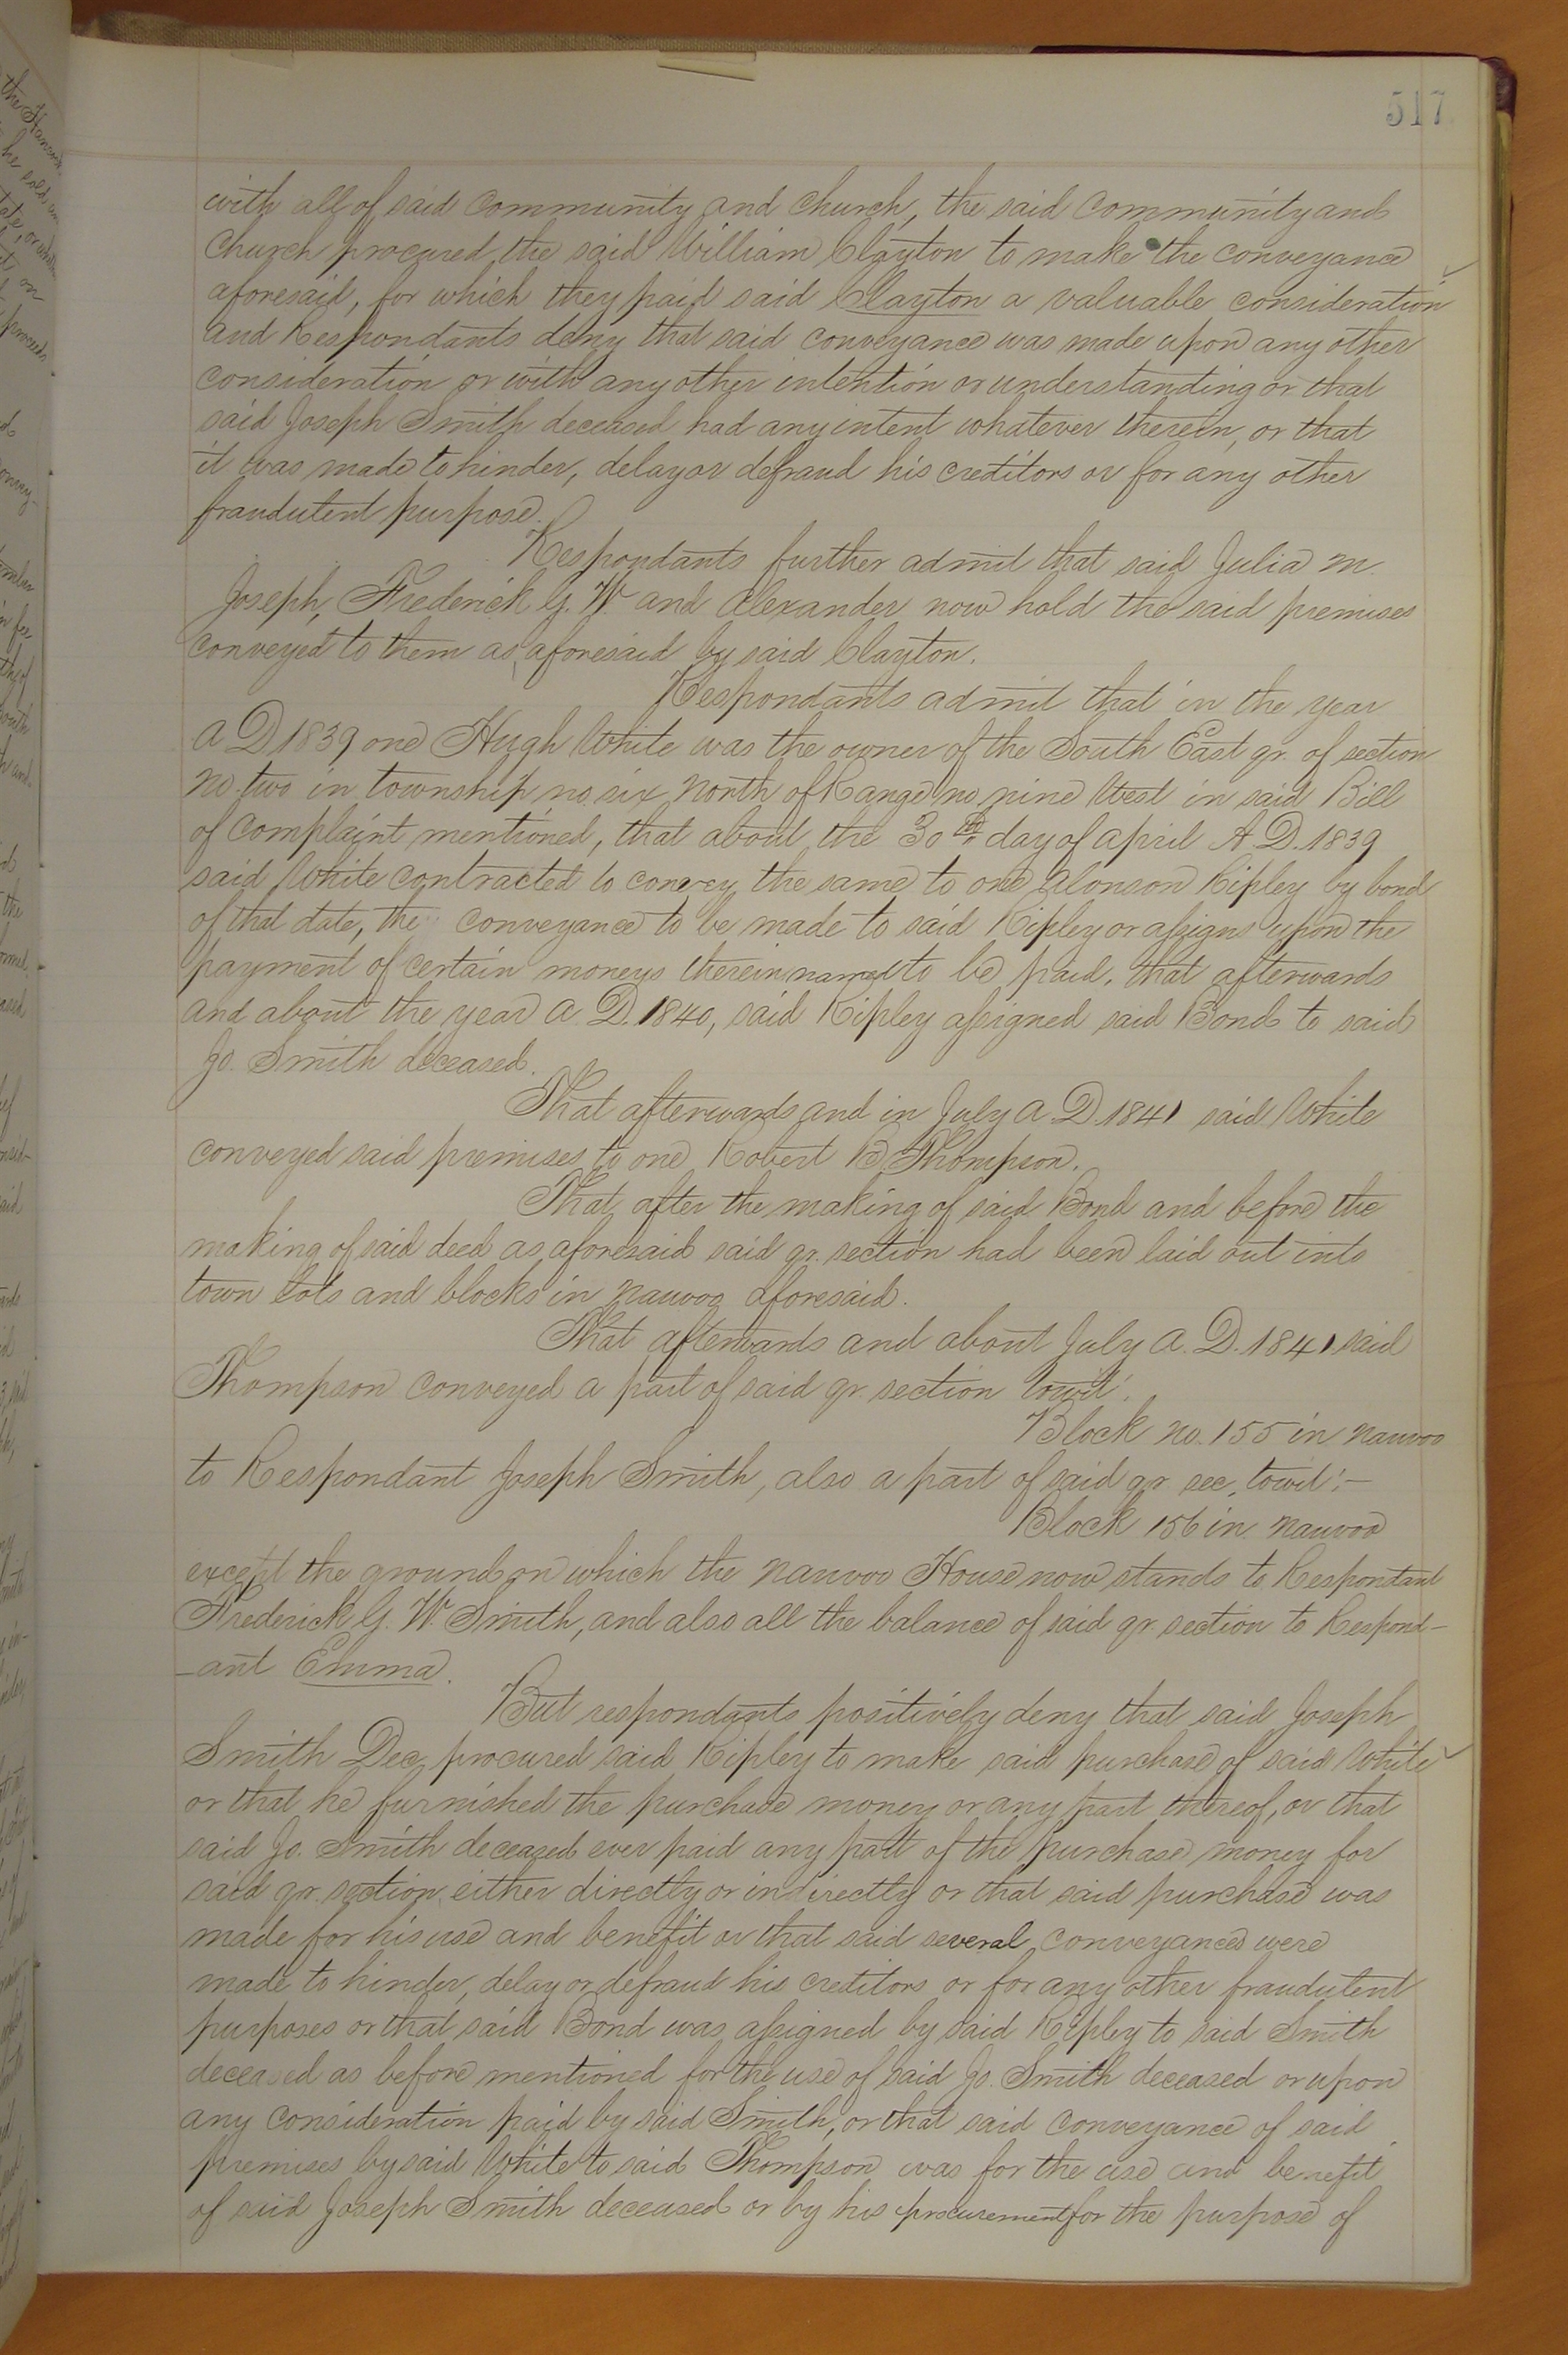 517
with all of said Community and Church, the said Community and
Church procured the said William Clayton to make the conveyance
aforesaid, for which they paid said Clayton a valuable consideration
and Respondants deny that said conveyance was made upon any other
consideration or with any other intention or understanding or that
said Joseph Smith deceased had any intent whatever therein, or that
it was made to hinder, delay or defraud his creditors or for any other
fraudulent purpose.
Respondants further admit that said Julia M.
Joseph, Frederick G. W. and Alexander now hold the said premises
conveyed to them as aforesaid by said Clayton.
Respondants admit that in the year
A D 1839 one Hugh White was the owner of the South East qr. of section
No. two in township no. six North of Range no. nine West in said Bill
of complaint mentioned, that about the 30th day of April A. D. 1839
said White contracted to convey the same to one Alonson Ripley by bond
of that date, the conveyance to be made to said Ripley or assigns upon the
payment of certain moneys therein named to be paid. that afterwards
and about the year A. D. 1840, said Ripley assigned said Bond to said
Jo. Smith deceased.
That afterwards and in July A. D. 1841 said White
conveyed said premises to one Robert B. Thompson.
That after the making of said Bond and before the
making of said deed as aforesaid said qr. section had been laid out into
town lots and blocks in Nauvoo aforesaid.
That afterwards and about July A. D. 1841 said
Thompson conveyed a part of said qr. section towit:
Block no. 155 in Nauvoo
to Respondant Joseph Smith, also a part of said qr. sec. towit:-
Block 156 in Nauvoo
except the ground on which the Nauvoo House now stands to Respondant
Frederick G. W. Smith, and also all the balance of said qr. section to Respond-
-ant Emma.
But respondants positively deny that said Joseph
Smith Dec. procured said Ripley to make said purchase of said White
or that he furnished the purchase money or any part thereof, or that
said Jo. Smith deceased ever paid any part of the purchase money for
said qr. section either directly or indirectly or that said purchase was
made for his use and benefit or that said several conveyances were
made to hinder, delay or defraud his creditors or for any other fraudulent
purposes or that said Bond was assigned by said Ripley to said Smith
deceased as before mentioned for the use of said Jo. Smith deceased or upon
any consideration paid by said Smith, or that said conveyance of said
premises by said White to said Thompson was for the use and benefit
of said Joseph Smith deceased or by his procurement for the purpose of